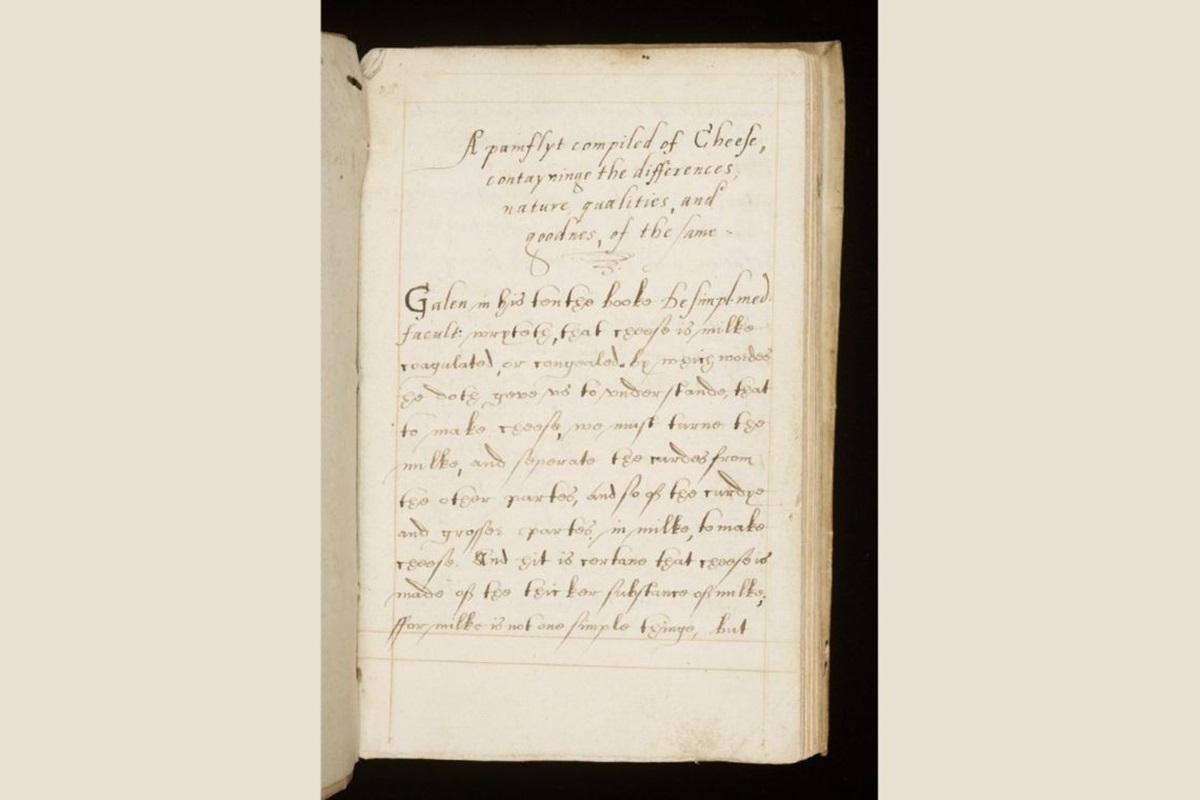 A pamflyt compiled of Cheese,
contayninge the differences,
nature, qualities, and
goodnes, of the same
Galen in his tenthe booke De simpl. med.
facult: wryteth, that cheese is milke
coagulated, or congealed. by which wordes
he doth geve vs to vnderstande, that
to make cheese, we must turne the
milke, and seperate the curdes from
the other partes, and so of the curdye
and grosser partes, in milke, to make
cheese. And hit is certane that cheese is
made of the thicker substance of milke;
ffor milke is not one simple thinge, but